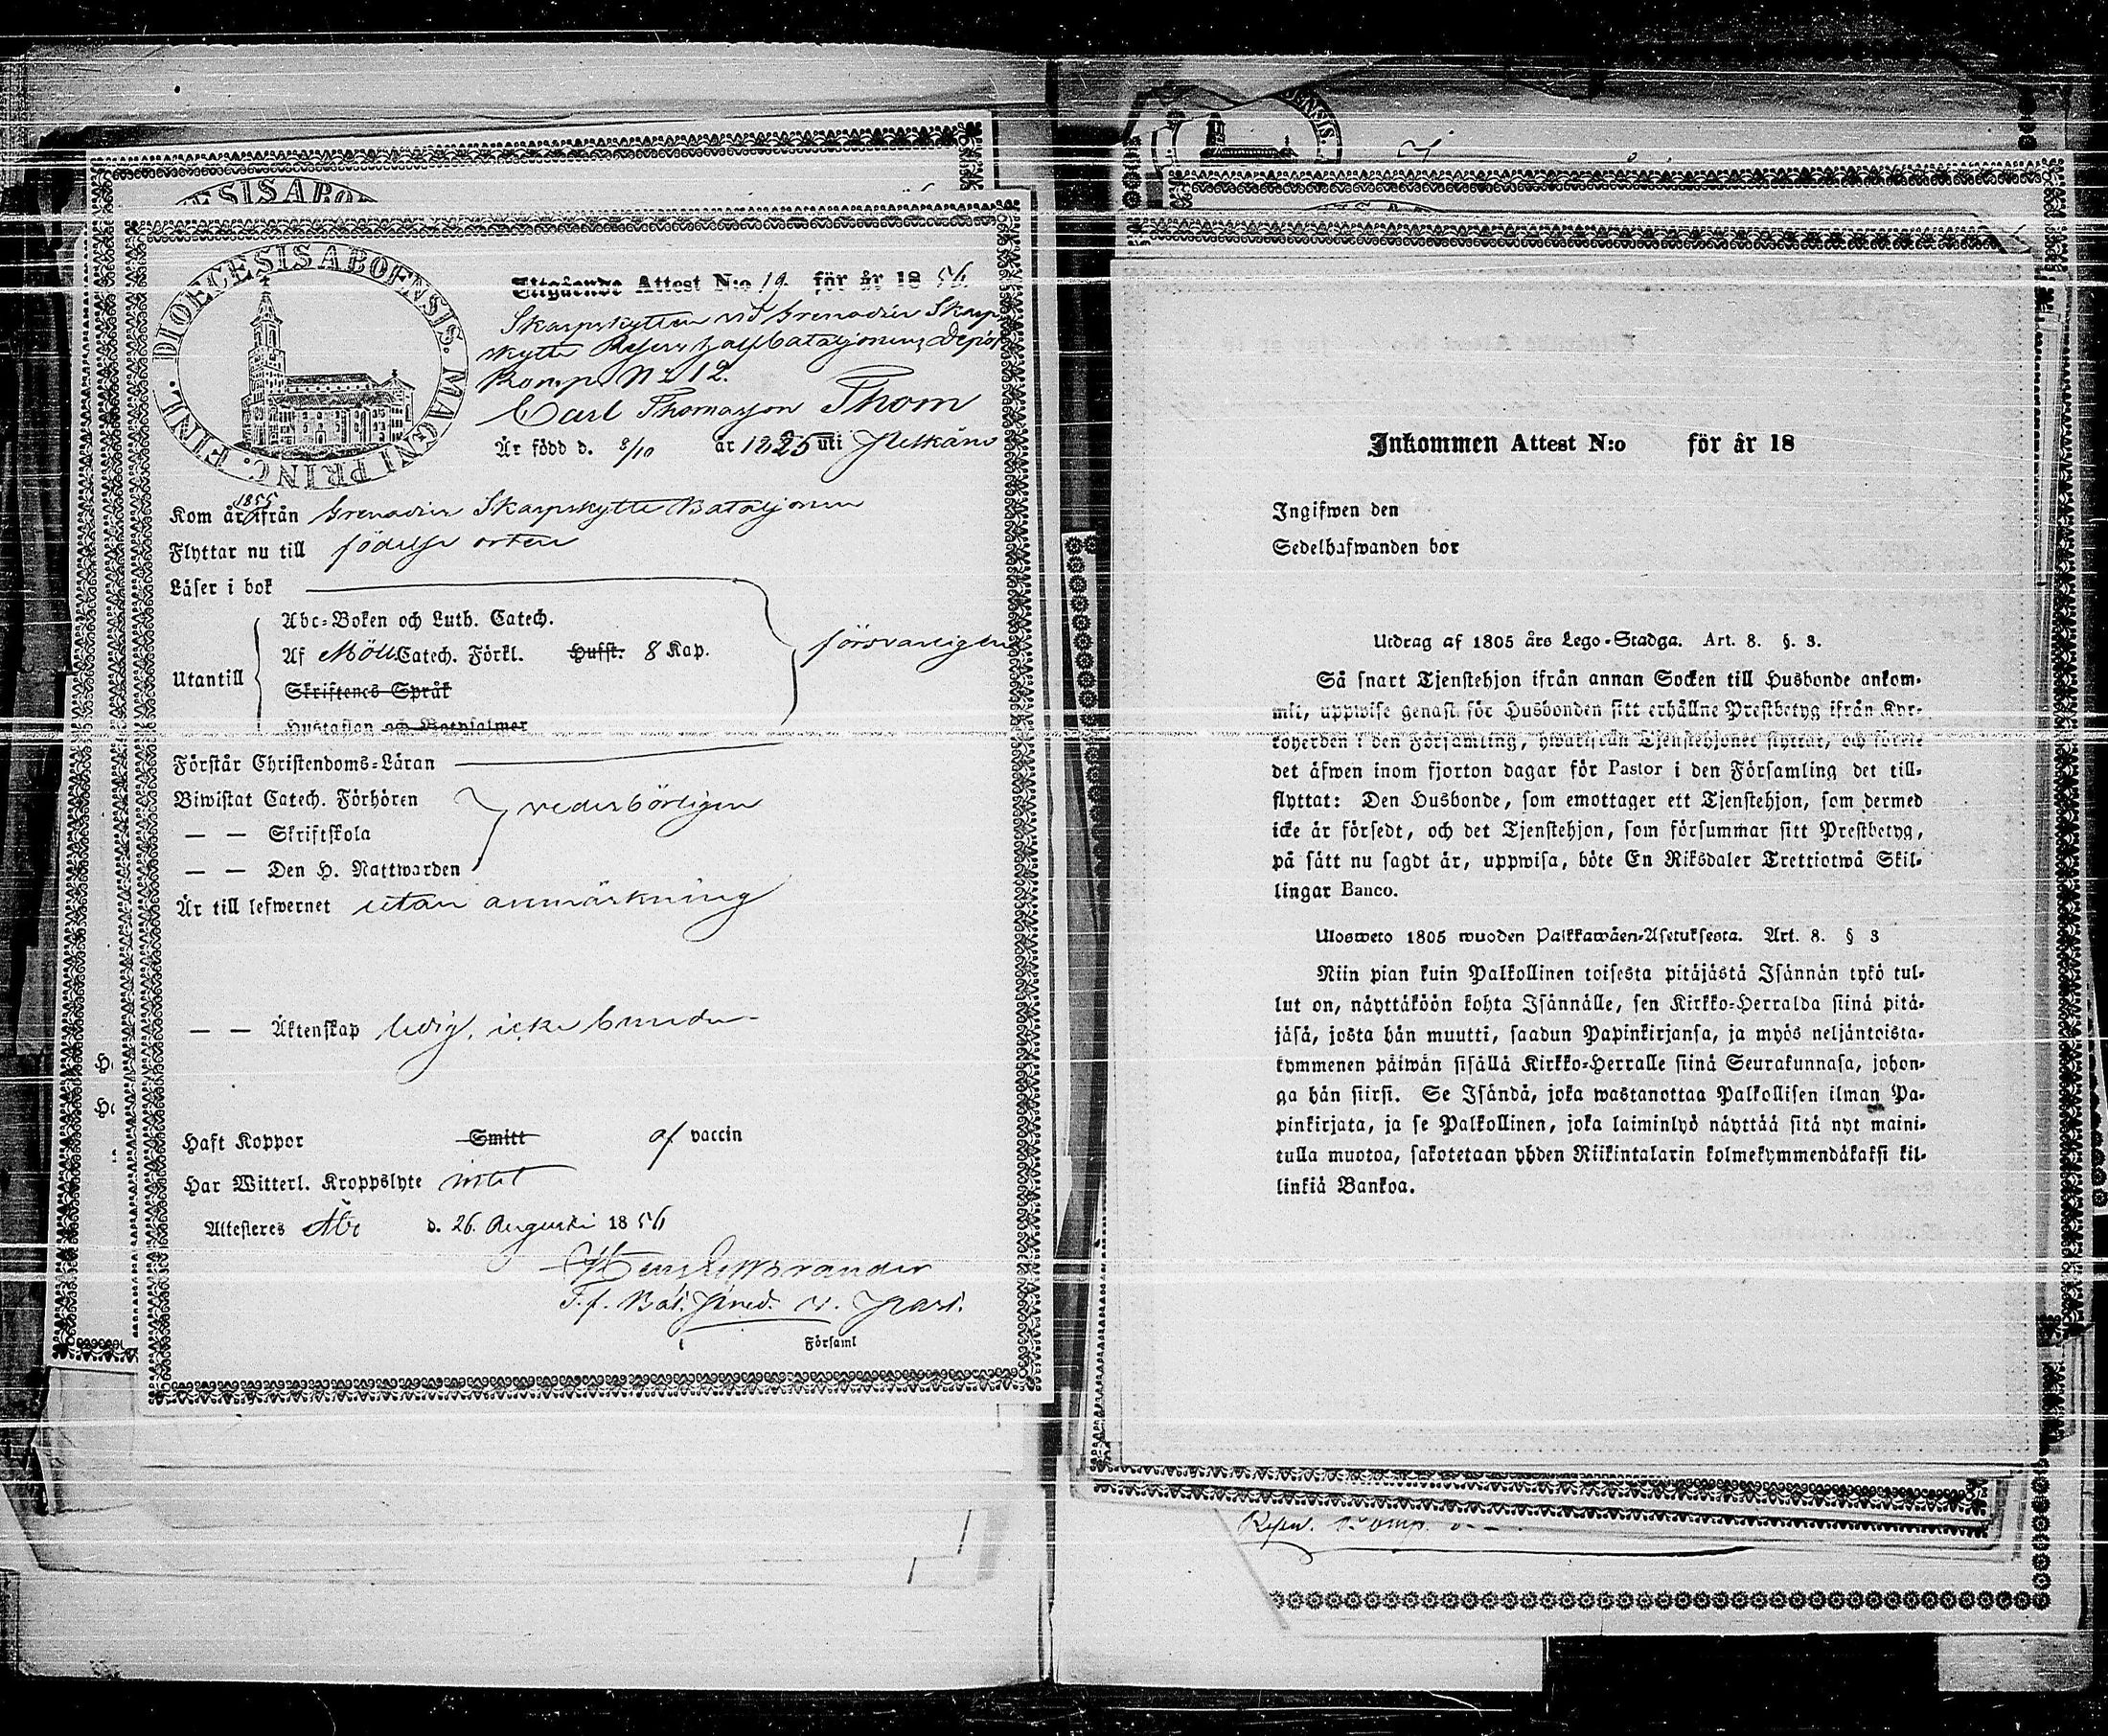 DIOECESIS ABOENSIS. MAGNI PRINC. FINL.
Utgående Attest N:o 19. för år 1856.
Skarpskytten vid Grenadier Skarp
skytte Reserv halfbataljonens Depôt
Komp. N:o 12.
Carl Thomasson Thom
Är född d. 8/10 år 1825 uti
Kom år 1855 ifrån Grenadier Skarpskytte Bataljonen
Flyttar nu till födelse orten
Läser i bok
Abc-Boken och Luth. Catech.
Af Möll Catech. Förkl. Husst. 8 Kap. försvarligen
Utantill
Skriftenes Språk
Hustaflan och Botpsalmer
Förstår Christendoms-Läran
Biwistat Catech. Förhören vederbörligen
— — Skriftskola
— — Den H. Nattwarden
Är till lefwernet utan anmärkning
— — Äktenskap ledig, icke bunden
Haft Koppor Smitt af vaccin
Har Witterl. Kroppslyte intet
Attesteres Åbo d. 26. Augusti 1856
T.f. Bat. Pred.
i Församl
ENSIS.
Inkommen Attest N:o för år 18
Ingifwen den
Sedelhafwanden bor
Utdrag af 1805 års Lego-Stadga. Art. 8. §. 3.
Så snart Tjenstehjon ifrån annan Socken till Husbonde ankom-
mit, uppwise genast för Husbonden sitt erhållne Prestbetyg ifrån Kyr-
koherden i den Församling, hwarifrån Tjenstehjonet flyttat, och förete
det äfwen inom fjorton dagar för Pastor i den Församling det till-
flyttat: Den Husbonde, som emottager ett Tjenstehjon, som dermed
icke är försedt, och det Tjenstehjon, som försummar sitt Prestbetyg,
på sätt nu sagdt är, uppwisa, böte En Riksdaler Trettiotwå Skil-
lingar Banco.
Ulosweto 1805 wuoden Palkkawäen-Asetuksesta. Art. 8. § 3
Niin pian kuin Palkollinen toisesta pitäjästä Isännän tykö tul-
lut on, näyttäköön kohta Isännälle, sen Kirkko-Herralda siinä pitä-
jäsä, josta hän muutti, saadun Papinkirjansa, ja myös neljäntoista-
kymmenen päiwän sisällä Kirkko-Herralle siinä Seurakunnasa, johon-
ga hän siirsi. Se Isändä, joka wastanottaa Palkollisen ilman Pa-
pinkirjata, ja se Palkollinen, joka laiminlyö näyttää sitä nyt maini-
tulla muotoa, sakotetaan yhden Riikintalarin kolmekymmendäkaksi kil-
linkiä Bankoa.